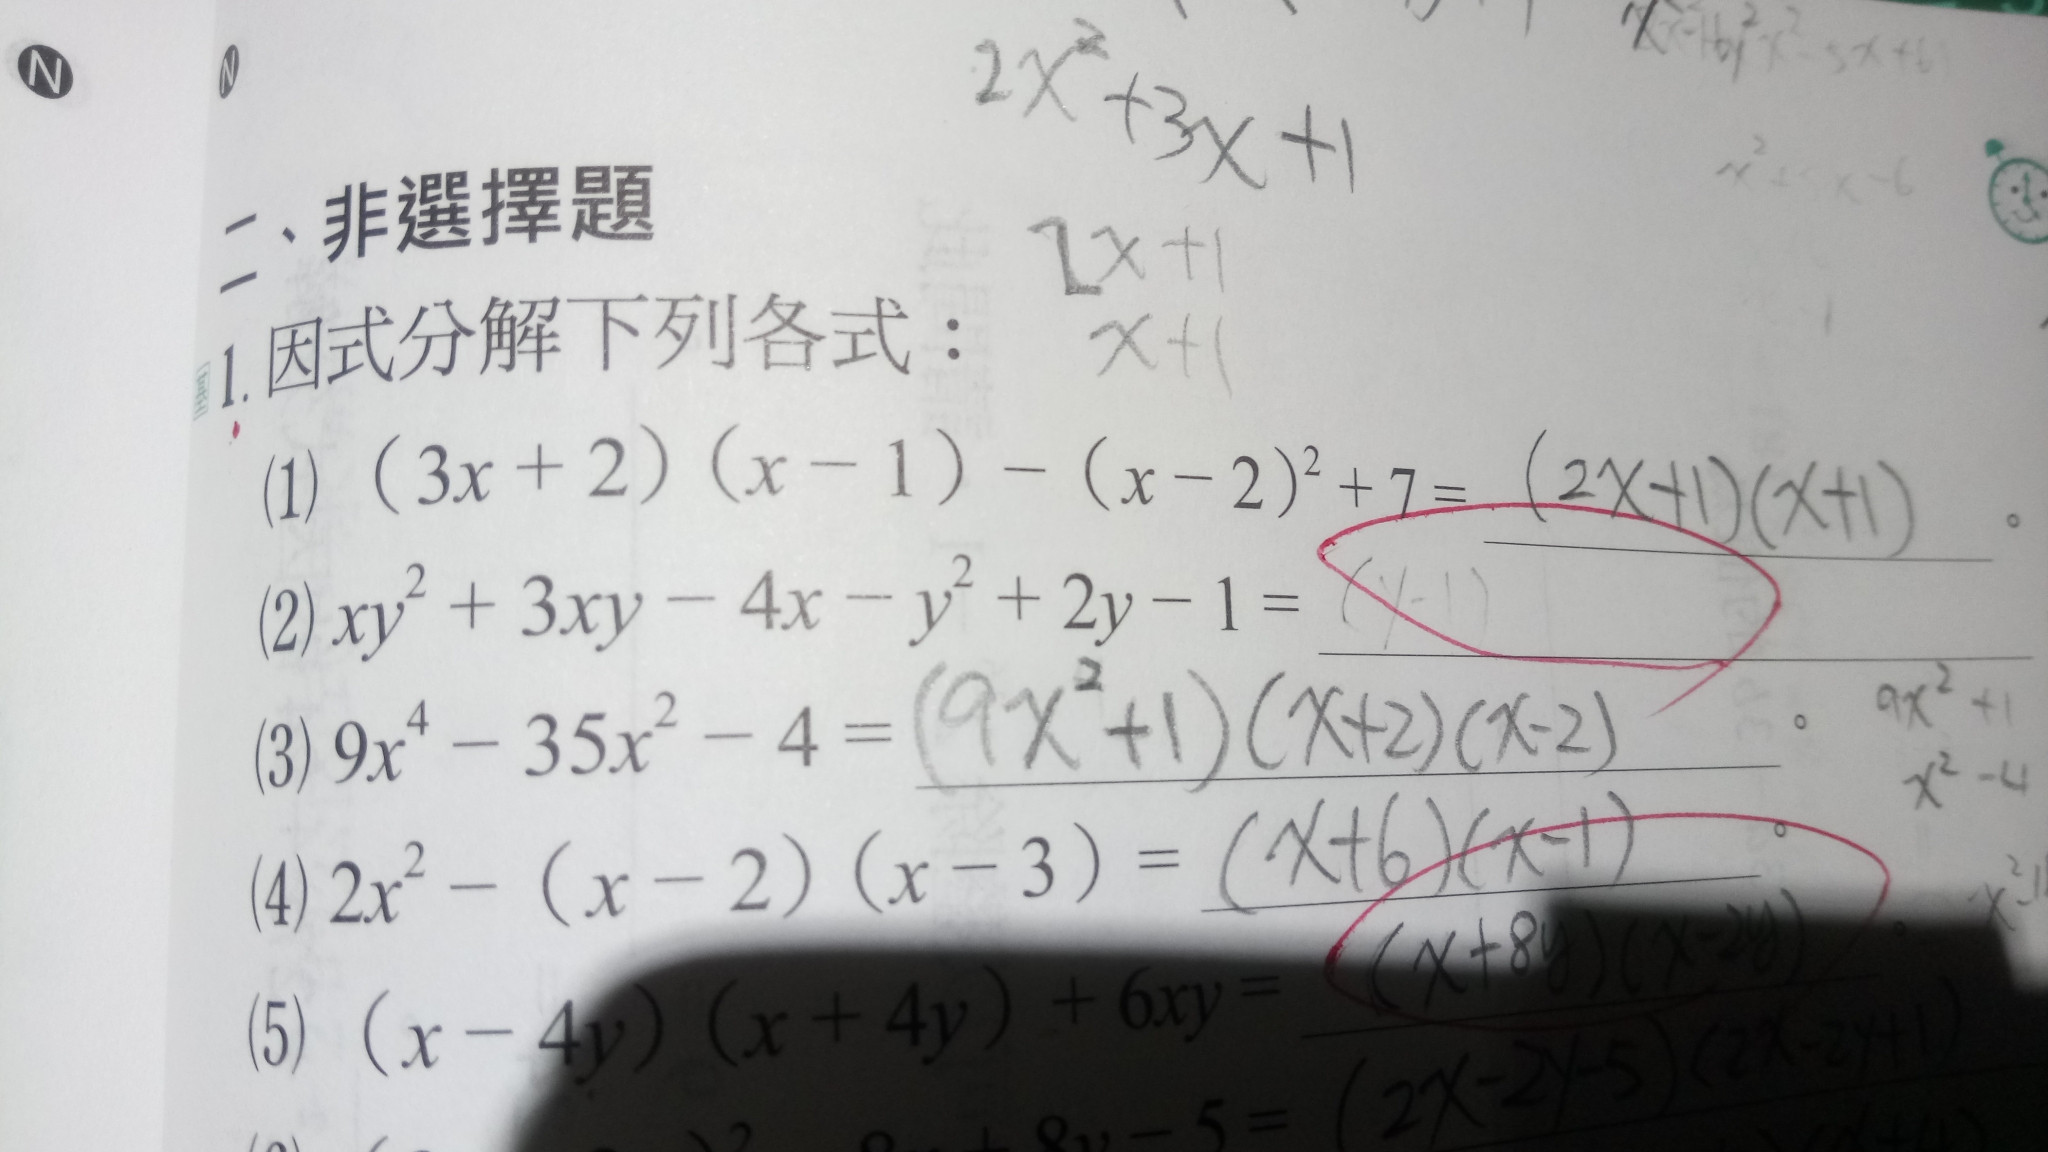 N N
2x²+3x+1
x²-5x+6
x²+5x-6
二、非選擇題
2x+1
x+1
1.因式分解下列各式：
(1) (3x+2)(x-1)-(x-2)²+7= (2x+1)(x+1)。
(2) xy²+3xy-4x-y²+2y-1= (y-1)
(3) 9x⁴-35x²-4= (9x²+1)(x+2)(x-2)。
9x²+1
x²-4
(4) 2x²-(x-2)(x-3)= (x+6)(x-1)。
(5) (x-4y)(x+4y)+6xy= (x+8y)(x-2y)。
8y-5= (2x-2y-5)(2x-2y+1)